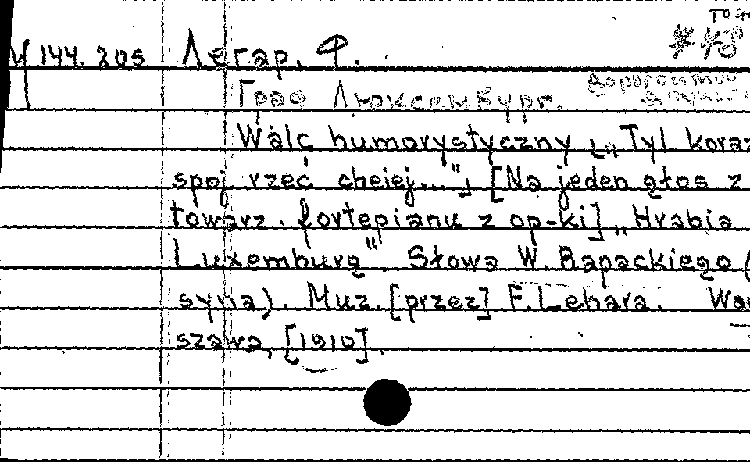 144.205 Легар, Ф.
Граф Люксембург.
Walc humorystyczny „Tyl koraz
spoj rzeć chciej..." [Na jeden głos z
towarz. fortepianu z op-ki] „Hrabia
Luxemburg". Słowa W. Rapackiego (
syna). Muz. [przez] F. Lehara. War
szawa, [1910].